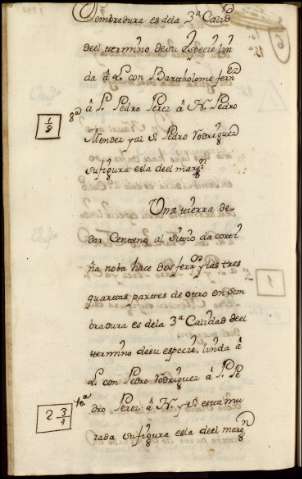 Sembradura es dela 3ª Calid
deel termino desu Especie lin
da á L. con Bartholome fern
á P. Pedro Perez á N. Pedro
Mendez y al S. Pedro Rodriguez
su figura es la deel marg
1/9
Una tierra de
dos Centeno al Sitio da corti
ña noba hace dos ferr y las tres
quartas partes de otro en sem
bradura es dela 3ª Calidad deel
termino desu especie, linda á
L. con Pedro Rodriguez á P. Pe
dro Perez á N. y S. esta mu
rada su figura es la deel marg
2 3/4